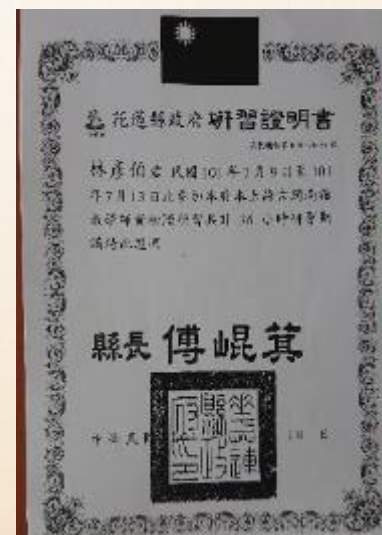 花蓮縣政府 研習證明書
林彥伯君 民國101年7月9日至101
年7月13日止參加本府本土語言閩南語
教學師資培訓研習共計 36 小時研習期
滿特此證明
縣長 傅崐萁
中華民國 日
花蓮縣政府印